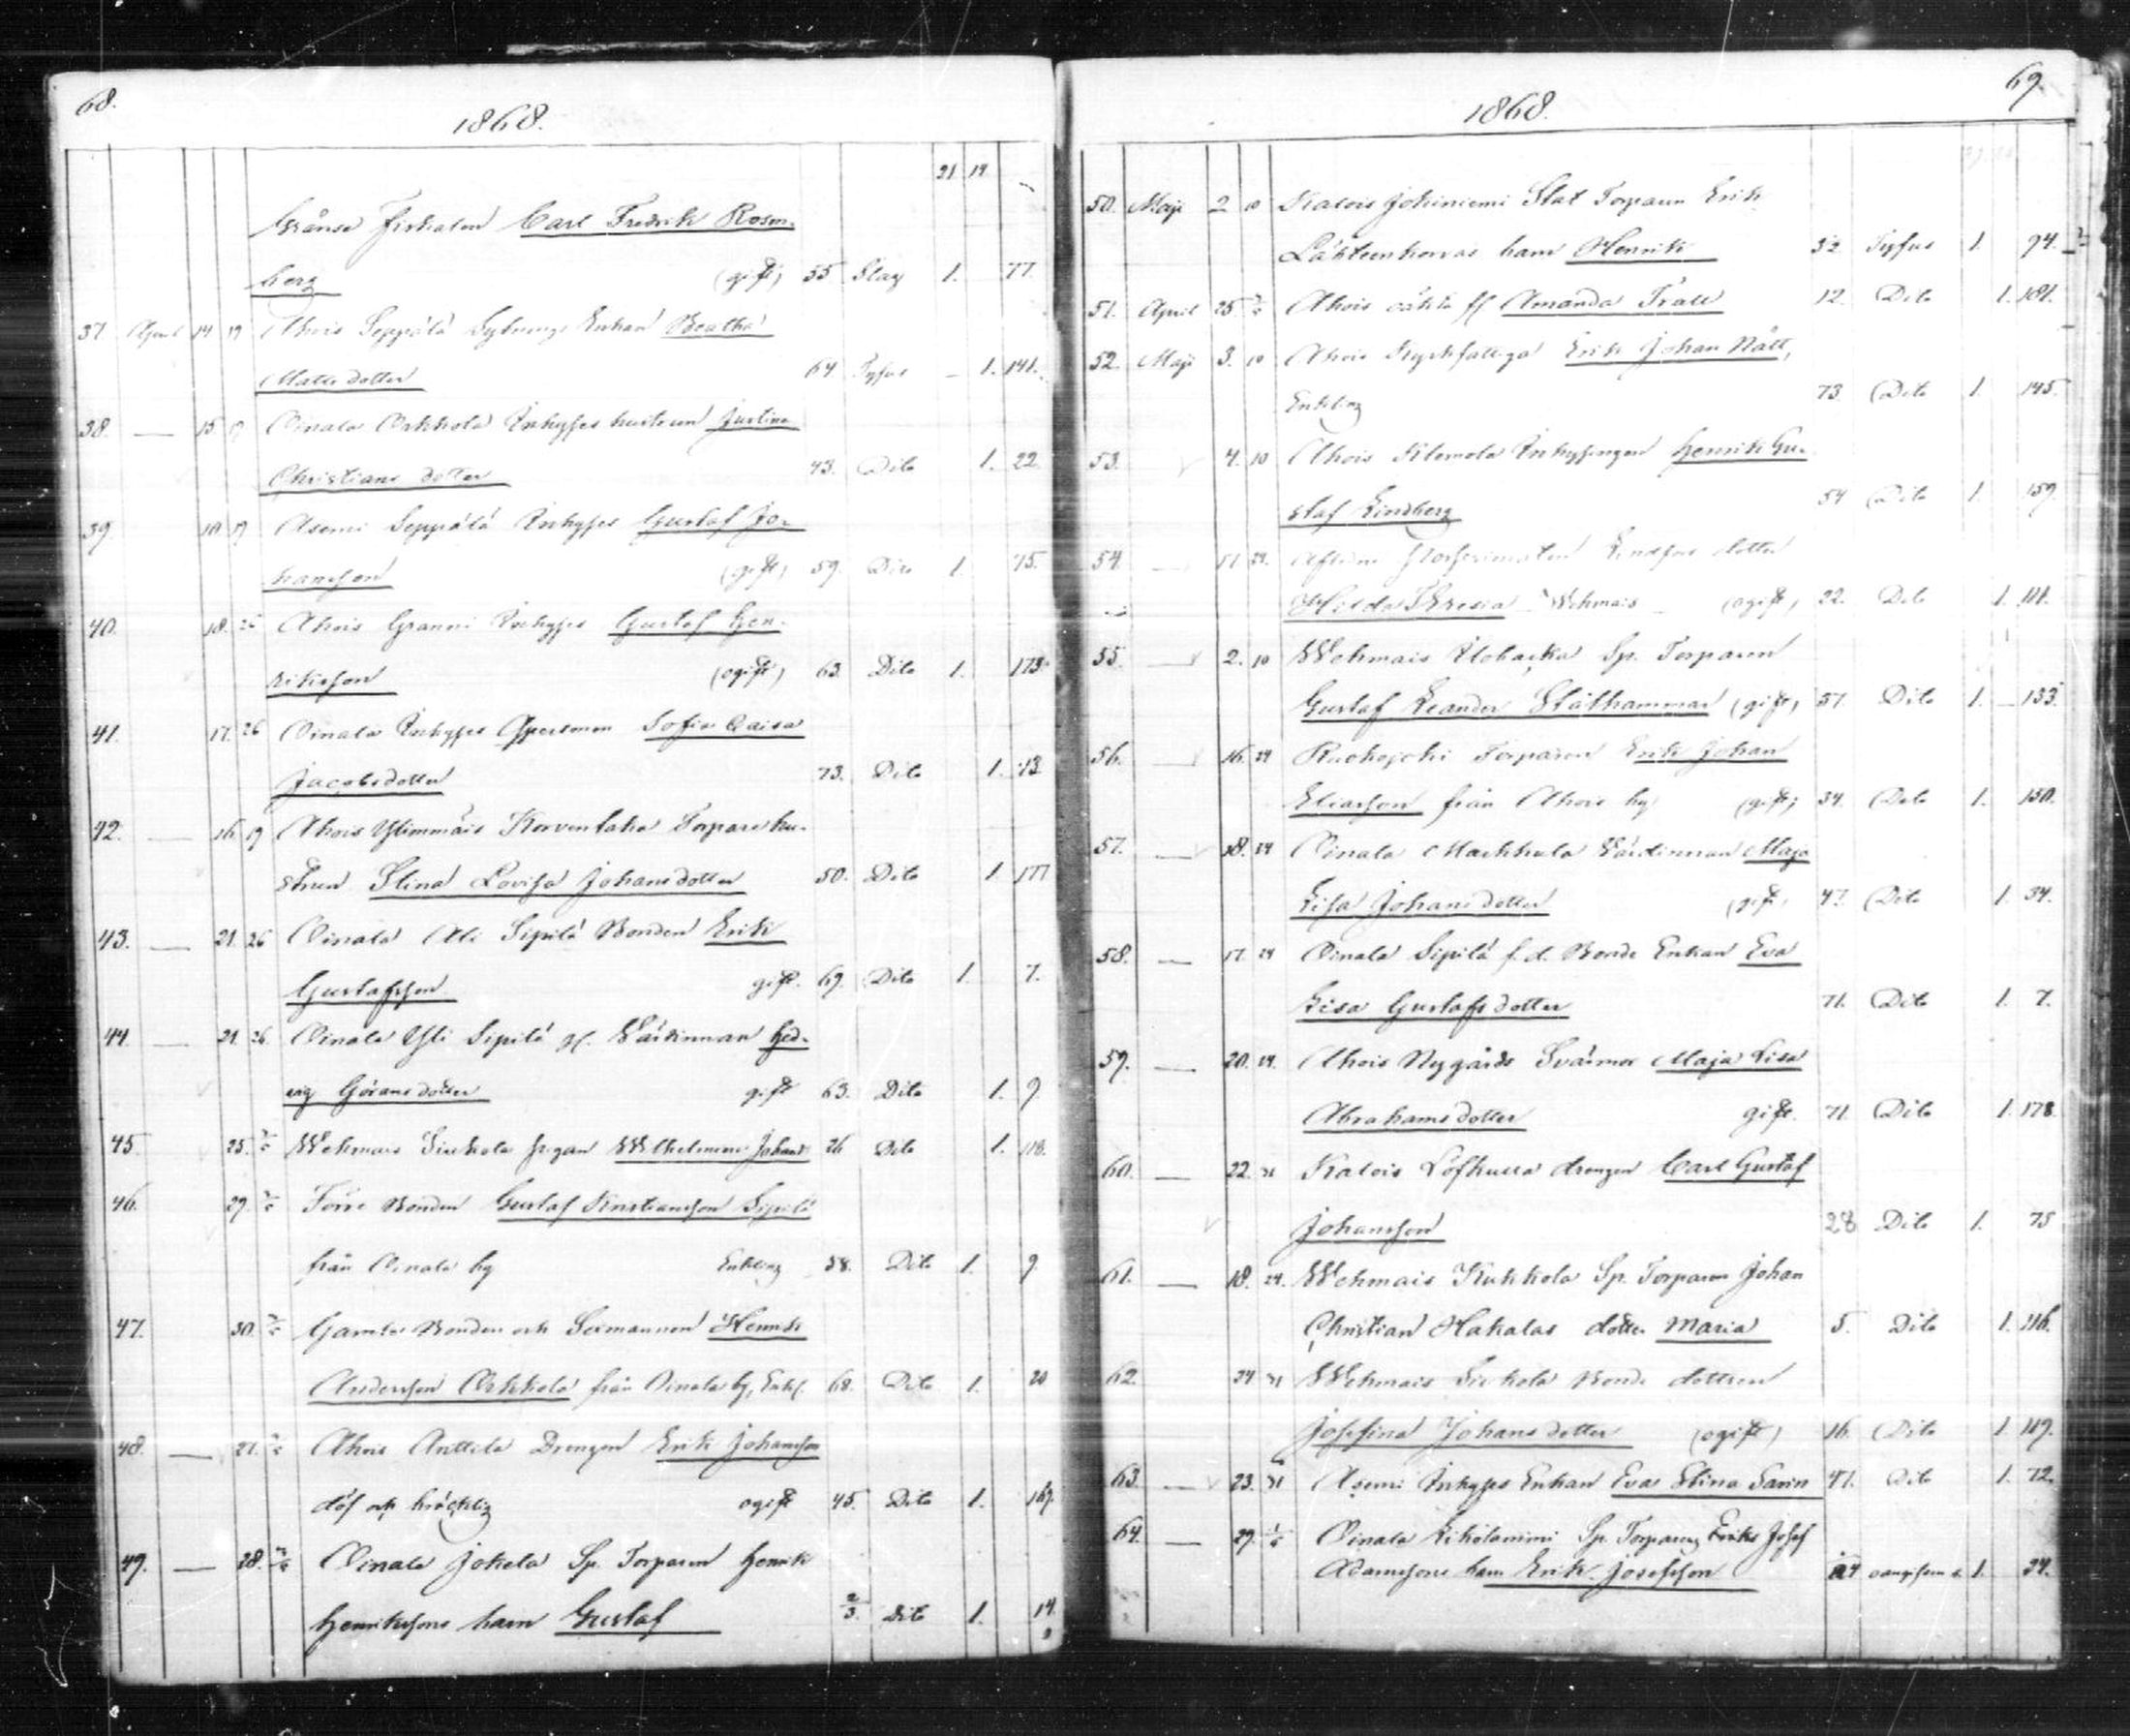 68.
1868.
21 19
Gränse fiskalen Carl Fredrik Rosen-
berg (gift) 55 Slag 1. 77.
37. April 14 19 Ahois Seppälä Enkan Beatha
Matts dotter 64 Tyfus 1. 141.
38. — 15 19 Oinala Orkkola Inhyses hustrun Justina
Christians dotter 43. Dito 1. 22.
39. 19 Asemi Seppälä Inhyses Gustaf Jo-
hansson (gift) 59. Dito 1. 75.
40. 18. 26 Ahois Granni Inhyses Gustaf Hen-
riksson (ogift) 63. Dito 1. 173.
41. 17. 26 Oinala Inhyses Sofia Caisa
Jacobsdotter 73. Dito 1. 13
42. — 16 19 Ahois Ylimmäis Korventaka Torpare hu-
strun Stina Lovisa Johansdotter 50. Dito 1. 177
43. — 21. 26 Oinala Ali Sipilä Bonden Erik
Gustafsson gift. 69. Dito 1. 7.
44. — 21. 26. Oinala Yli Sipilä gl. Värdinnan Hed-
vig Görans dotter gift 63. Dito 1. 9
45. 25. Wehmais Sickola pigan Wilhelmina Johans 26 Dito 1. 118.
46. 29. Förre Bonden Gustaf Kristiansson Sipilä
från Oinala by Enkling 58. Dito 1. 9
47. 30. Gamla Bonden och Sexmannen Henrik
Andersson Orkkola från Oinala by, Enkl. 68. Dito 1. 20
48. — 27. Ahois Anttila Drengen Erik Johansson
döf och bräcklig ogift 45. Dito 1. 167.
49. — 28. Oinala Jokela Sp. Torparen Henrik
Henrikssons barn Gustaf 2/3. Dito 1. 14
69.
1868.
50. Maji 2 10 Kalois Johiniemi Stat Torparen Erik
Lähteenkorvas barn Henrik Tyfus 1. 94.
51. April 25 Ahois Amanda Trall 12. Dito 1. 181.
52. Maji 3. 10 Ahois Kyrkfattiga Erik Johan Nätt,
Enkling 73. Dito 1. 145.
53. 4. 10 Ahois Klemola Inhysingen Henrik Gu-
staf Lindberg 54 Dito 1. 159
54. — 17. 24. Aflidne Lindfors dotter
Hilda Theresia Wehmais (ogift) 22. Dito 1. 111.
55. — 2. 10 Wehmais Ylobacka Sp. Torparen
Gustaf Leander Stålhammar (gift) 57. Dito 1. 133.
56. — 16. 24 Ruokojoki Torparen Erik Johan
Eliasson från Ahois by (gift) 34. Dito 1. 150.
57. — 18. 24 Oinala Markkula Värdinnan Maja
Lisa Johans dotter (gift) 47. Dito 1. 34.
58. — 17. 24 Oinala Sipilä f.d. Bonde Enkan Eva
Lisa Gustafs dotter 71. Dito 1. 7.
59. — 20. 24. Ahois Nygårds Svärmor Maja Lisa
Abrahams dotter gift. 71. Dito 1. 178.
60. — 22. 31 Kalois Löfkulla drengen Carl Gustaf
Johansson 28 Dito 1. 75
61. — 18. 24. Wehmais Kukkola Sp. Torparen Johan
Christian Hakalas dotter Maria 5. Dito 1. 116.
62. 24 31 Wehmais Sickola Bonde dottren
Josefina Johans dotter (ogift) 16. Dito 1. 119.
63. — 23. 31 Asemi Inhyses Enkan Eva Stina Sarin 47. Dito 1. 72.
64. — 29. Oinala Sp. Torparen Josef
Adamssons barn Erik Josefsson 1. 24.